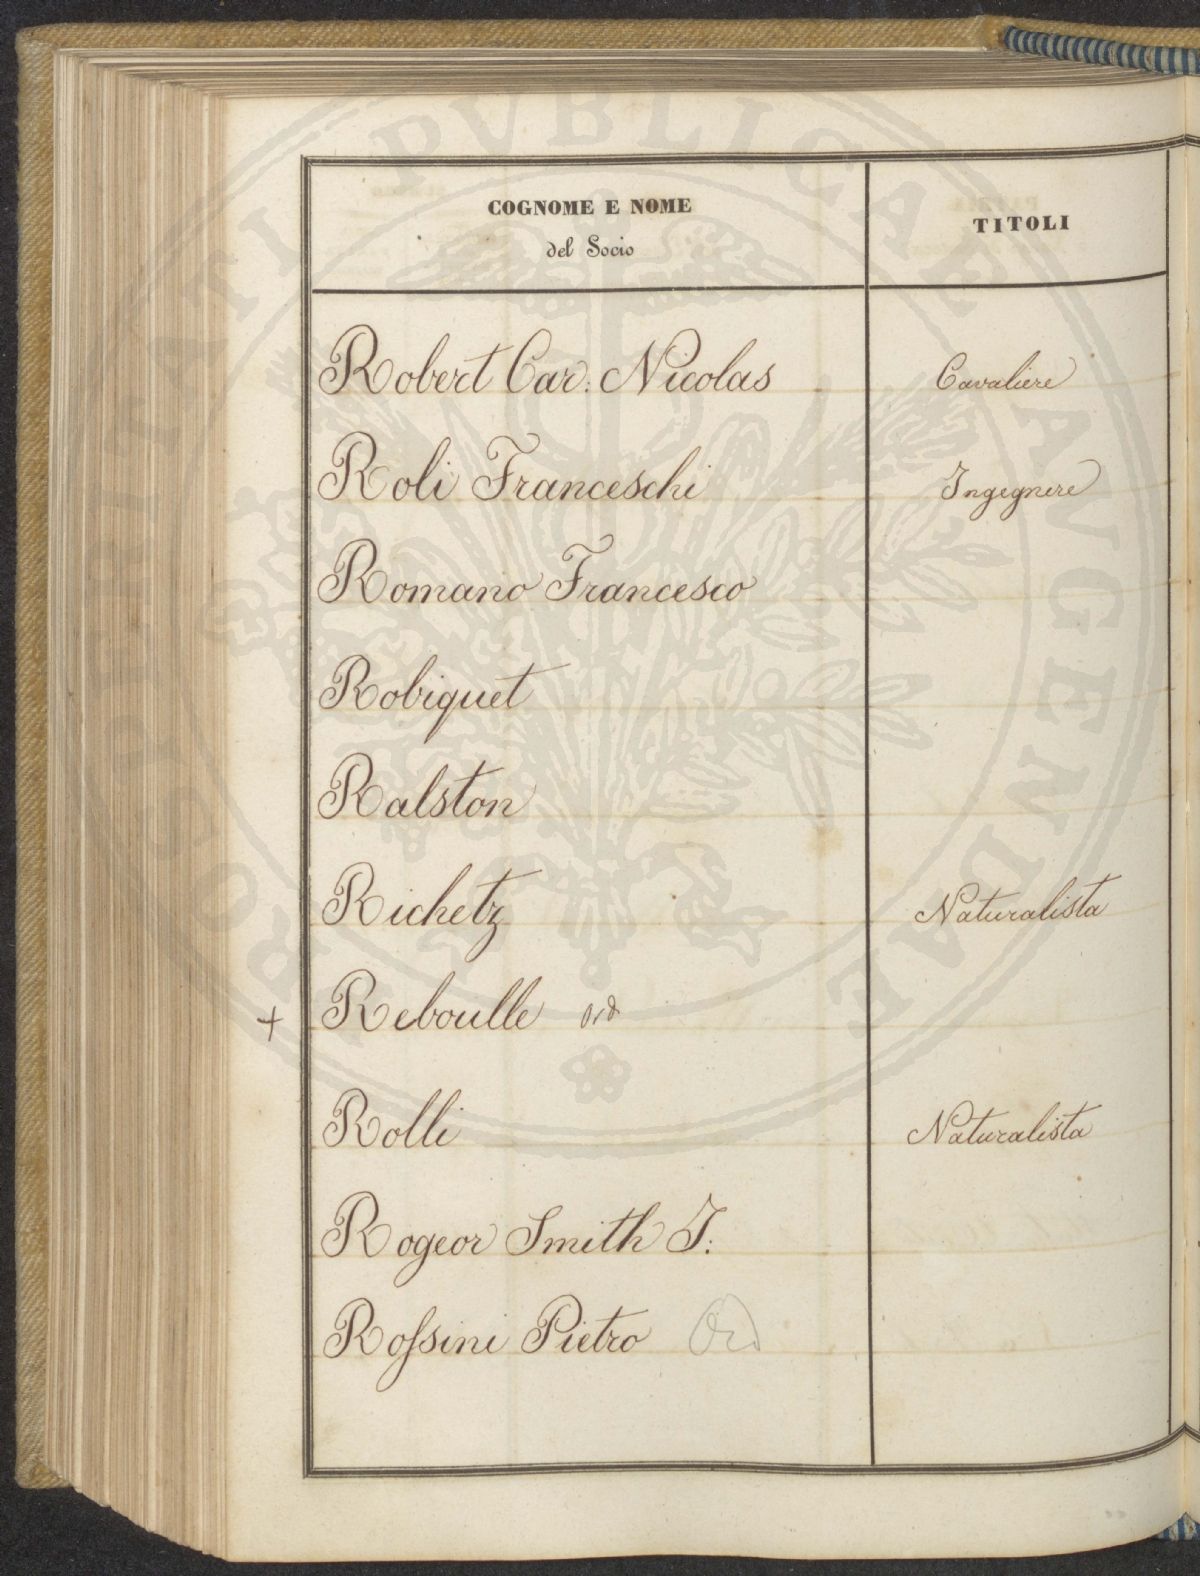 COGNOME E NOME TITOLI
del Socio
Robert Car: Nicolas Cavaliere
Roli Franceschi Ingegnere
Romano Francesco
Robiquet
Ralston
Richetz Naturalista
+ Reboulle ord
Rolli Naturalista
Rogeor Smith J:
Roſsini Pietro Ord
PROSPERITATI PVBLICAE AVGENDAE